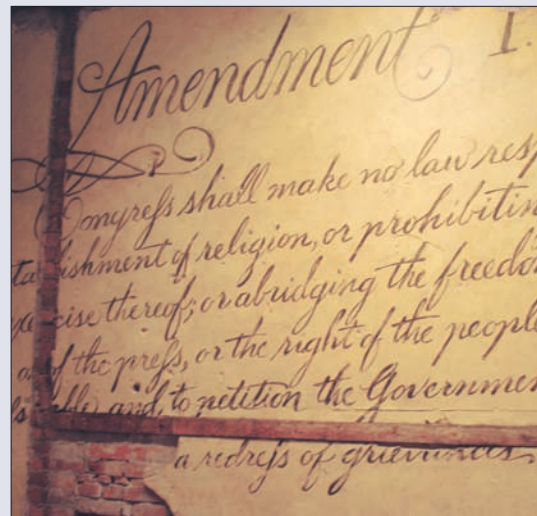 Amendment I.
Congreſs shall make no law resp
ishment of religion, or prohibitin
cise thereof; or abridging the freedo
of the preſs, or the right of the people
and to petition the Governmen
a redreſs of grievances.